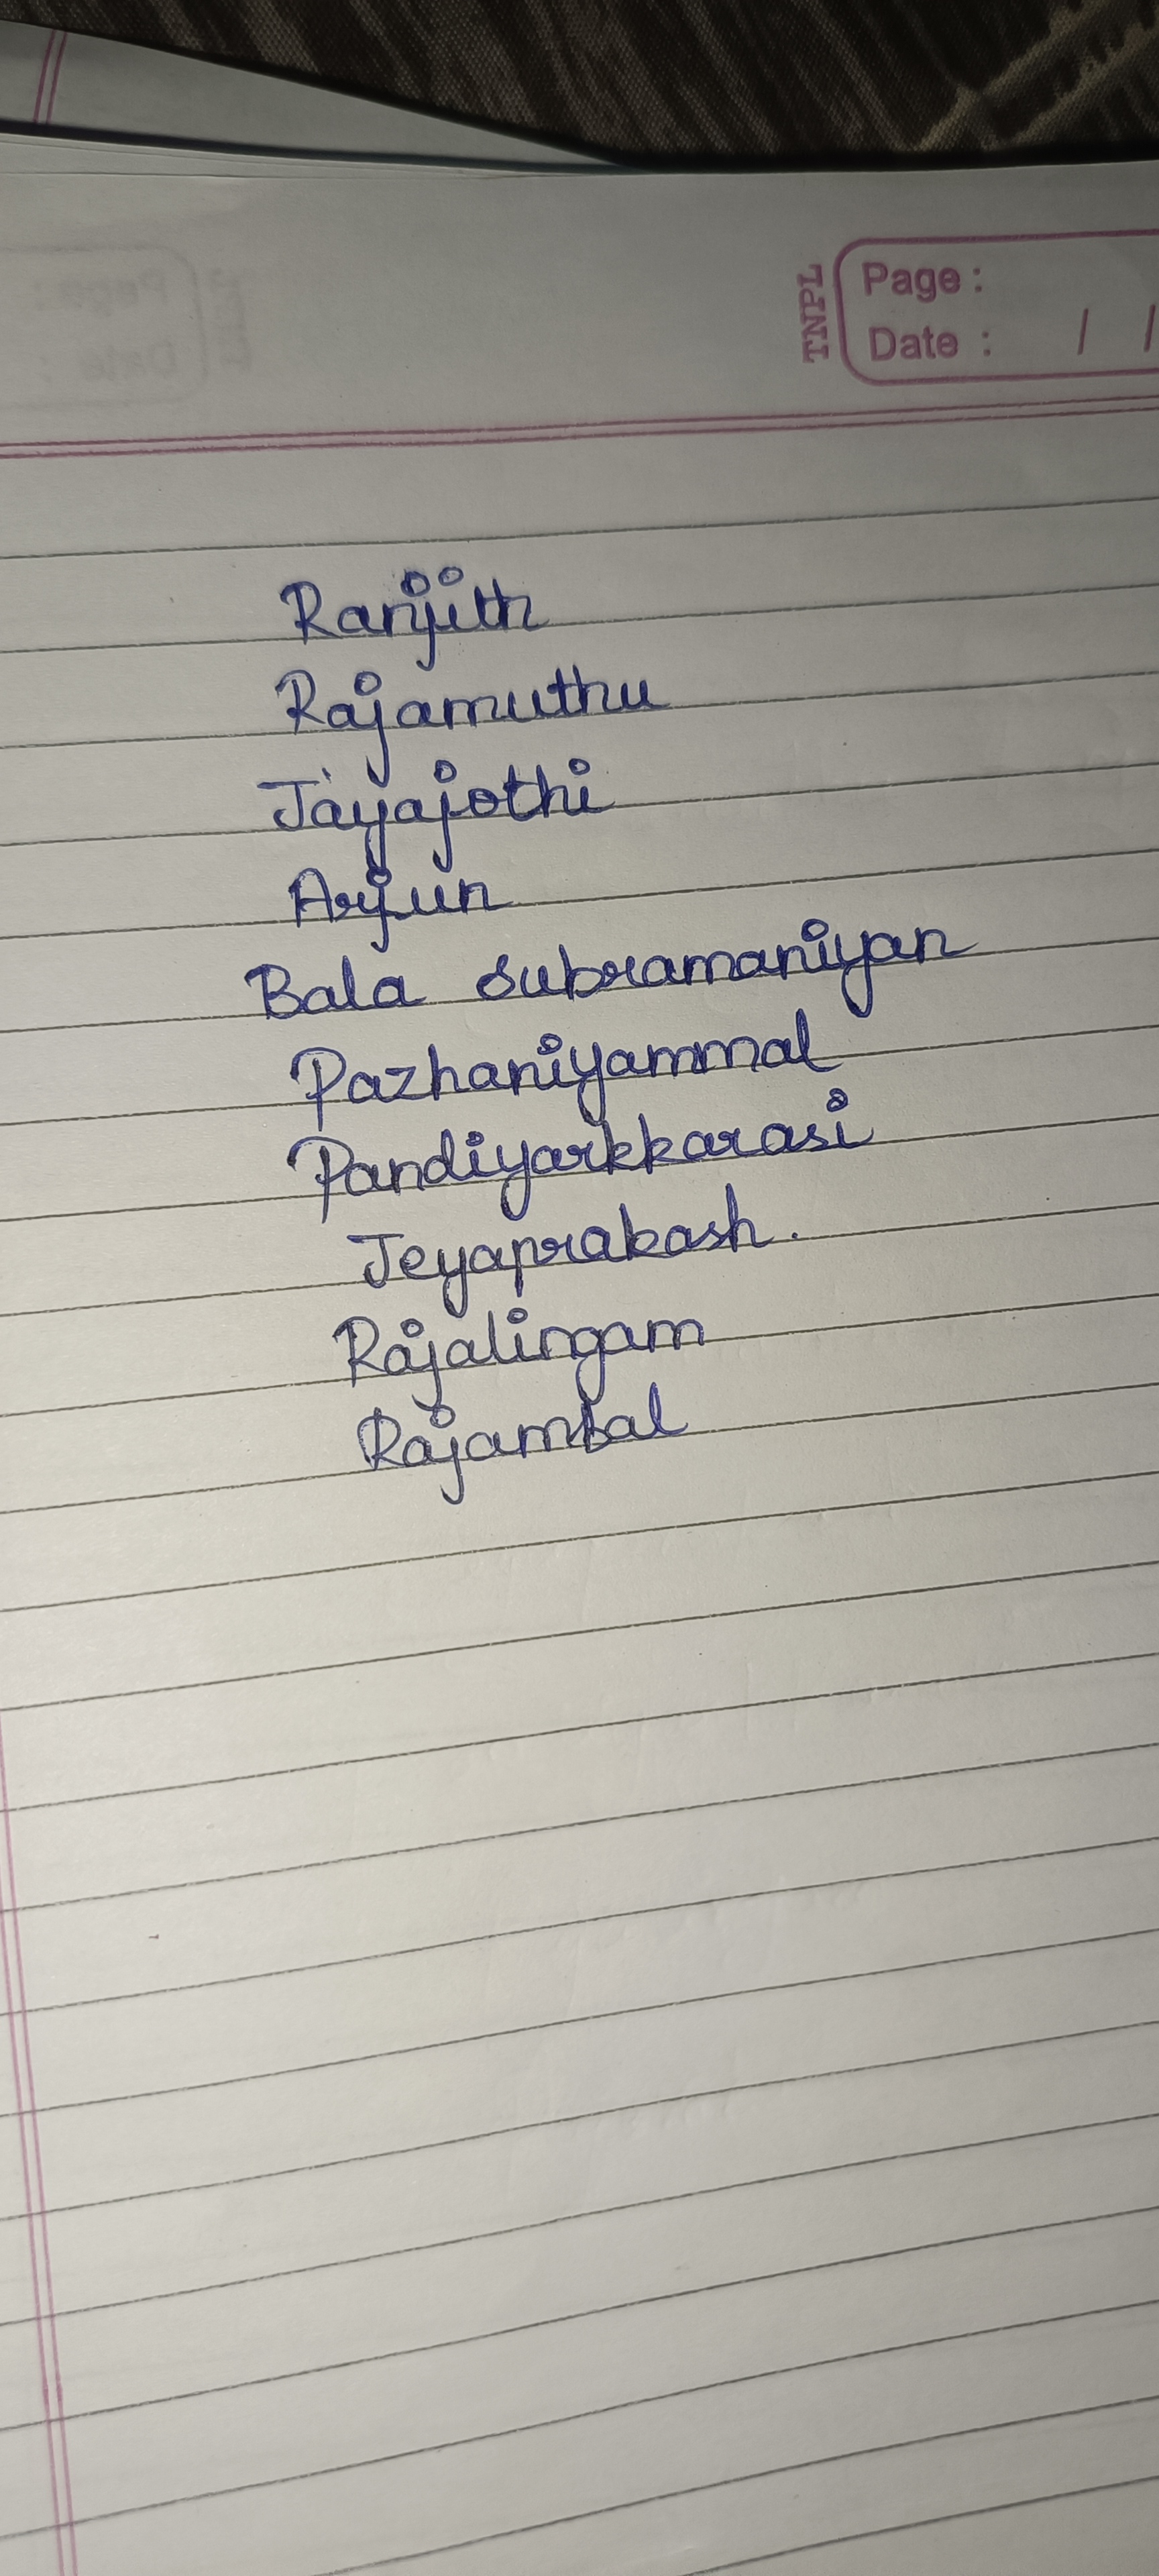 TNPL
Page :
Date : / /
Ranjith
Rajamuthu
Jayajothi
Arjun
Bala Subramaniyan
Pazhaniyammal
Pandiyarkkarasi
Jeyaprakash.
Rajalingam
Rajambal